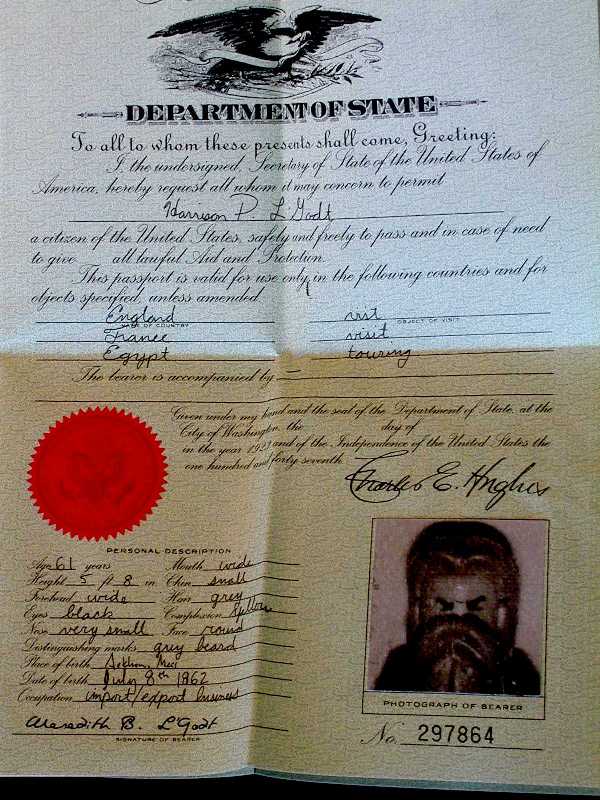 DEPARTMENT OF STATE
To all to whom these presents shall come, Greeting:
I, the undersigned, Secretary of State of the United States of
America, hereby request all whom it may concern to permit
Harrison P. L'Godt
a citizen of the United States, safely and freely to pass and in case of need
to give all lawful Aid and Protection.
This passport is valid for use only in the following countries and for
objects specified, unless amended
England visit
NAME OF COUNTRY OBJECT OF VISIT
France visit
Egypt touring
The bearer is accompanied by
Given under my hand and the seal of the Department of State, at the
City of Washington, the day of
in the year 1923 and of the Independence of the United States the
one hundred and forty seventh
Charles E. Hughes
PERSONAL DESCRIPTION
Age 61 years Mouth wide
Height 5 ft 8 in Chin small
Forehead wide Hair grey
Eyes black Complexion
Nose very small Face round
Distinguishing marks grey beard
Place of birth
Date of birth July 8th 1862
Occupation import/export business
Meredith B. L'Godt
SIGNATURE OF BEARER
PHOTOGRAPH OF BEARER
No. 297864